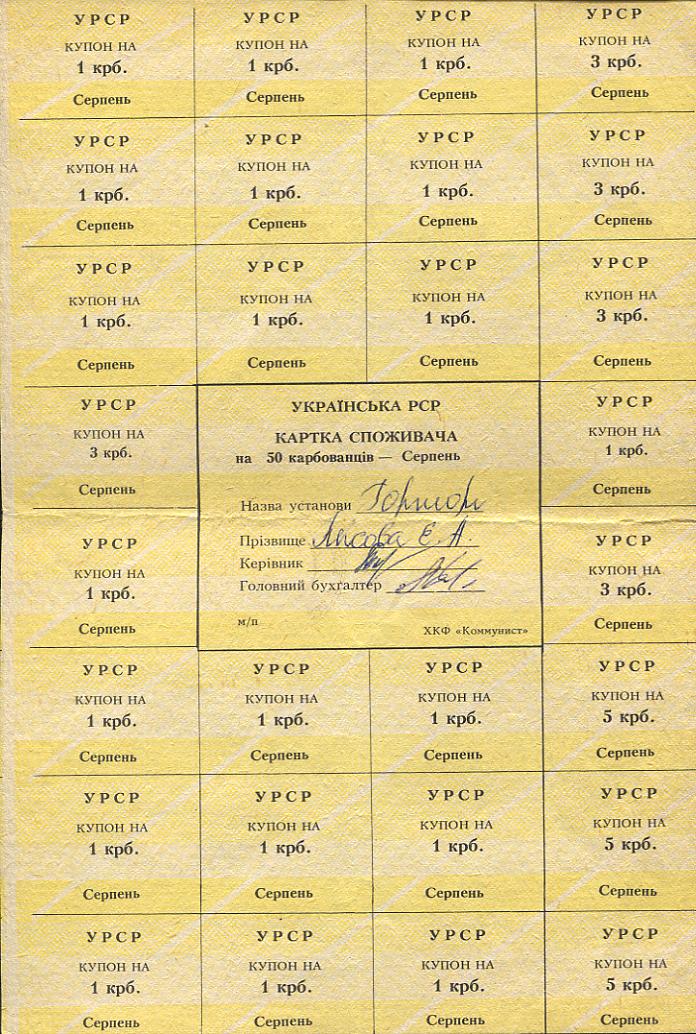 УРСР
КУПОН НА
1 крб.
Серпень
УРСР
КУПОН НА
1 крб.
Серпень
УРСР
КУПОН НА
1 крб.
Серпень
УРСР
КУПОН НА
3 крб.
Серпень
УРСР
КУПОН НА
1 крб.
Серпень
УРСР
КУПОН НА
1 крб.
Серпень
УРСР
КУПОН НА
1 крб.
Серпень
УРСР
КУПОН НА
3 крб.
Серпень
УРСР
КУПОН НА
1 крб.
Серпень
УРСР
КУПОН НА
1 крб.
Серпень
УРСР
КУПОН НА
1 крб.
Серпень
УРСР
КУПОН НА
3 крб.
Серпень
УРСР
КУПОН НА
3 крб.
Серпень
УКРАЇНСЬКА РСР
КАРТКА СПОЖИВАЧА
на 50 карбованців — Серпень
Назва установи
Прізвище Лисова Е. А.
Керівник
Головний бухгалтер
м/п
ХКФ «Коммунист»
УРСР
КУПОН НА
1 крб.
Серпень
УРСР
КУПОН НА
1 крб.
Серпень
УРСР
КУПОН НА
3 крб.
Серпень
УРСР
КУПОН НА
1 крб.
Серпень
УРСР
КУПОН НА
1 крб.
Серпень
УРСР
КУПОН НА
1 крб.
Серпень
УРСР
КУПОН НА
5 крб.
Серпень
УРСР
КУПОН НА
1 крб.
Серпень
УРСР
КУПОН НА
1 крб.
Серпень
УРСР
КУПОН НА
1 крб.
Серпень
УРСР
КУПОН НА
5 крб.
Серпень
УРСР
КУПОН НА
1 крб.
Серпень
УРСР
КУПОН НА
1 крб.
Серпень
УРСР
КУПОН НА
1 крб.
Серпень
УРСР
КУПОН НА
5 крб.
Серпень